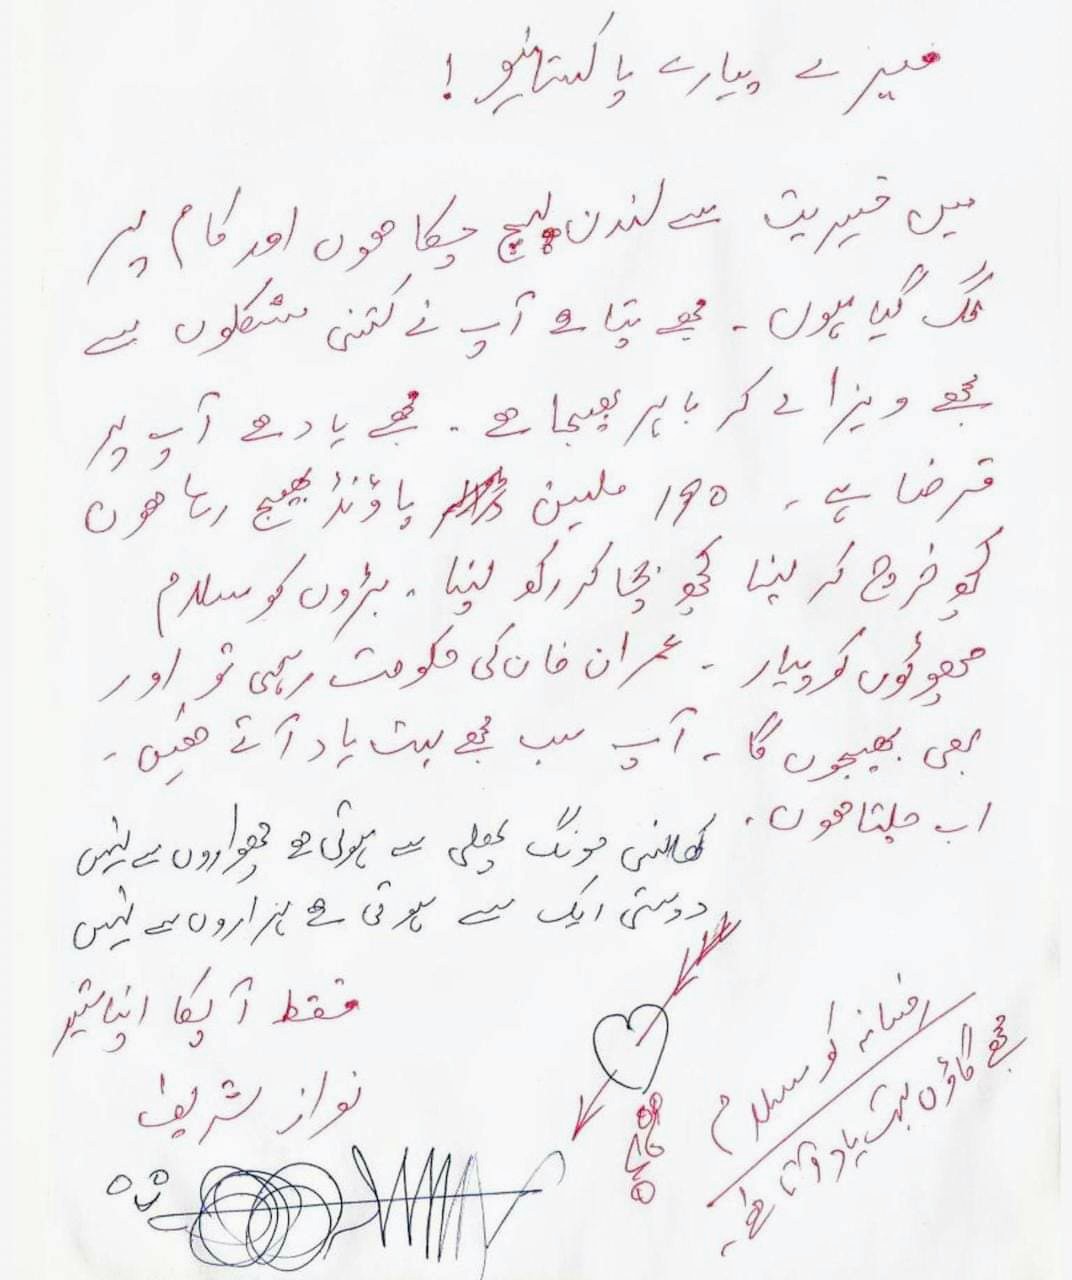 میرے پیارے پاکستانیو !
میں خیریت سے لندن پہنچ چکا ھوں اور کام پر
لگ گیا ہوں۔ مجھے پتا ھے آپ نے کتنی مشکلوں سے
مجھے ویزا لے کر باہر بھیجا ھے۔ مجھے یاد ھے آپ پر
قرضا ہے۔ 190 ملین پاؤنڈ بھیج رہا ھوں
کچھ خرچ کر لینا کچھ بچا کر رکھ لینا۔ بڑوں کو سلام
چھوٹوں کو پیار۔ عمران خان کی حکومت رہی تو اور
بھی بھیجوں گا۔ آپ سب مجھے بہت یاد آتے ھیں۔
اب چلتا ھوں۔
کھانسی مونگ پھلی سے ہوتی ھے چھواروں سے نہیں
دوستی ایک سے ہوتی ھے ہزاروں سے نہیں
فقط آپکا اپنا شیر
نواز شریف
رخسانہ کو سلام
مجھے گاؤں بہت یاد آتا ھے۔